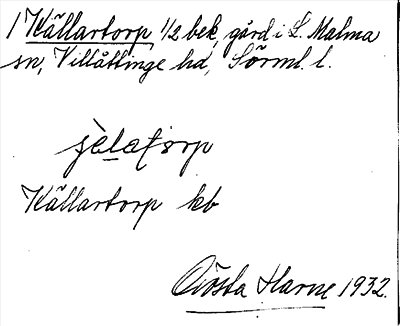 1 Källartorp 1/2 bek, gård i L. Malma
sn, Villåttinge hd, Sörml. l.
Källartorp kb
Gösta Harne 1932.